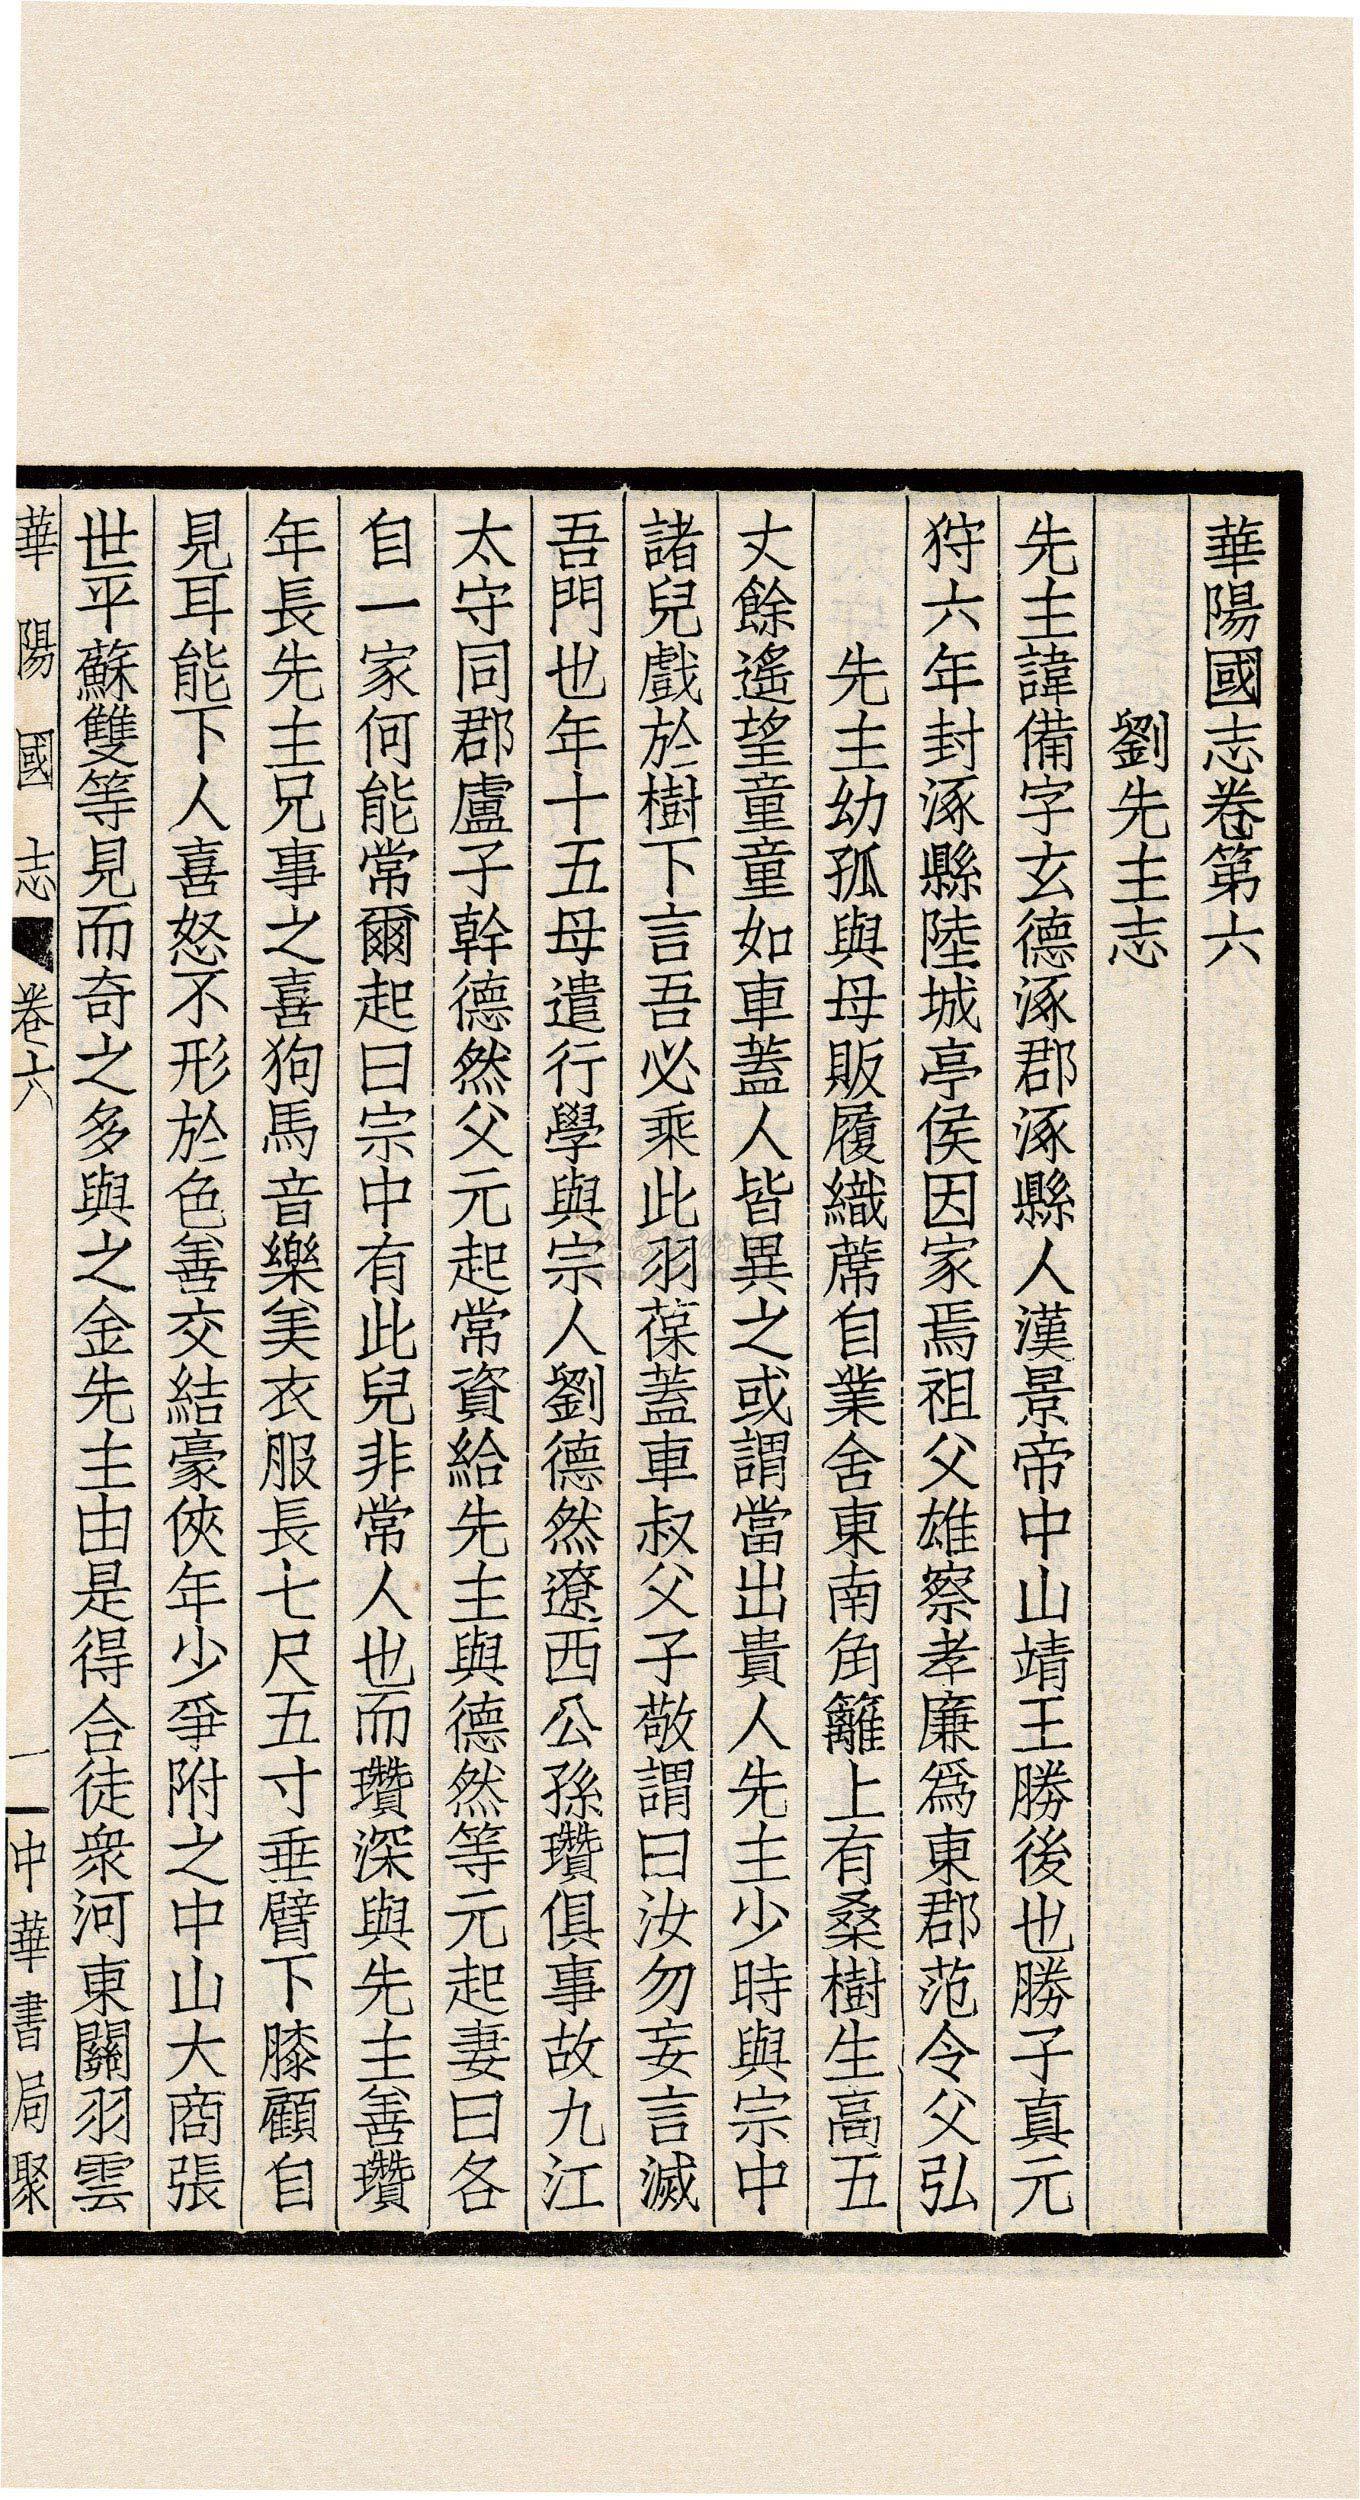 華陽國志卷第六
劉先主志
先主諱備字玄德涿郡涿縣人漢景帝中山靖王勝後也勝子真元
狩六年封涿縣陸城亭侯因家焉祖父雄察孝廉爲東郡范令父弘
先主幼孤與母販履織蓆自業舍東南角籬上有桑樹生高五
丈餘遙望童童如車蓋人皆異之或謂當出貴人先主少時與宗中
諸兒戲於樹下言吾必乘此羽葆蓋車叔父子敬謂曰汝勿妄言滅
吾門也年十五母遣行學與宗人劉德然遼西公孫瓚俱事故九江
太守同郡盧子幹德然父元起常資給先主與德然等元起妻曰各
自一家何能常爾起曰宗中有此兒非常人也而瓚深與先主善瓚
年長先主兄事之喜狗馬音樂美衣服長七尺五寸垂臂下膝顧自
見耳能下人喜怒不形於色善交結豪俠年少爭附之中山大商張
世平蘇雙等見而奇之多與之金先主由是得合徒衆河東關羽雲
華陽國志 卷六 一 中華書局聚